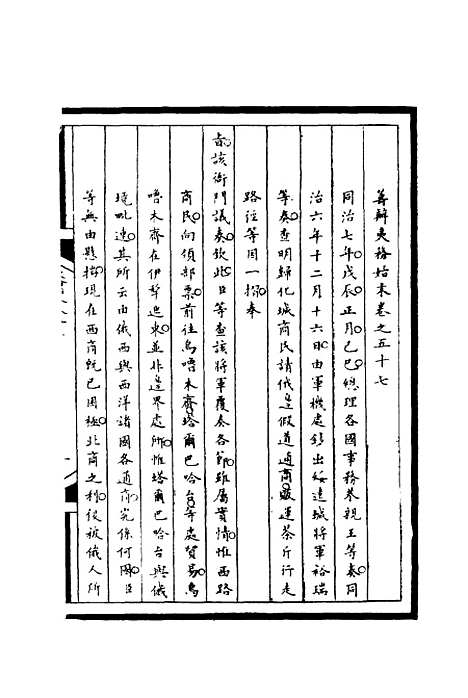 籌辦夷務始末卷之五十七
同治七年戊辰正月己巳總理各國事務恭親王等奏同
治六年十二月十六日由軍機處鈔出綏遠城將軍裕瑞
等奏查明歸化城商民請俄邊假道通商販運茶斤行走
路徑等因一摺奉
旨該衙門議奏欽此臣等查該將軍覆奏各節雖屬實情惟西路
商民向領部票前往烏嚕木齊塔爾巴哈台等處貿易烏
嚕木齊在伊犂迤東並非邊界處所惟塔爾巴哈台與俄
境毗連其所云由俄西與西洋諸國各通商究係何國臣
等無由懸揣現在西商既已困極北商之利後被俄人所